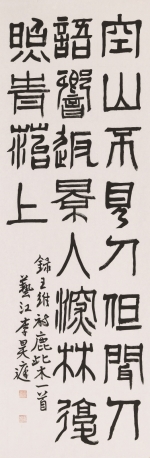 空山不見人但聞人
語響返景入深林復
照青苔上
錄王維詩鹿柴一首
藝江李昊遠